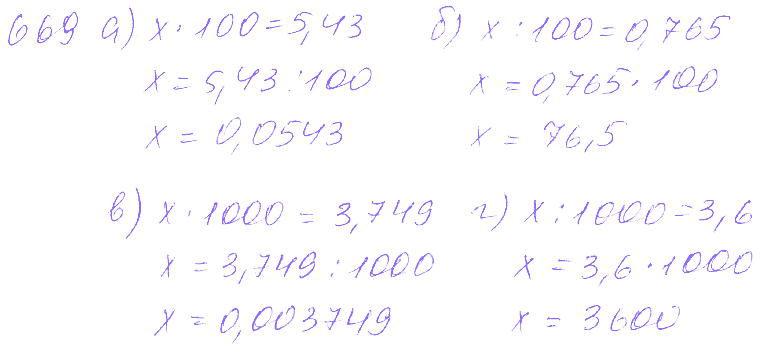 669 а) x · 100 = 5,43 б) x : 100 = 0,765
x = 5,43 : 100 x = 0,765 · 100
x = 0,0543 x = 76,5
в) x · 1000 = 3,749 г) x : 1000 = 3,6
x = 3,749 : 1000 x = 3,6 · 1000
x = 0,003749 x = 3600